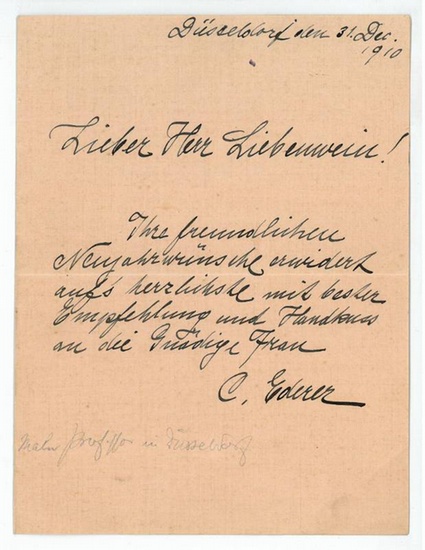 Düsseldorf den 31. Dec.
1910
Lieber Herr Liebenwein!
Ihre freundlichen
Neujahrwünsche erwidert
auf's herzlichste mit bester
Empfehlung und Handkuss
an die Gnädige Frau
C. Ederer
Maler Professor in Düsseldorf